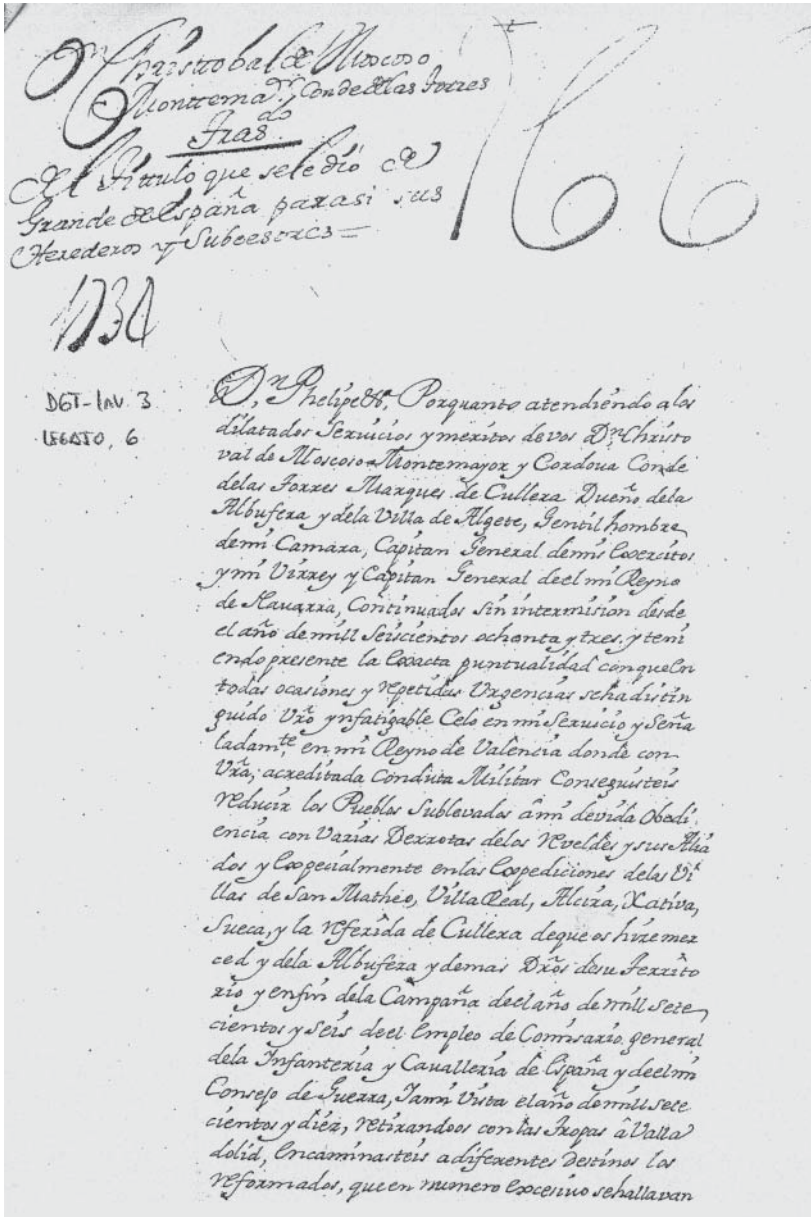 Dn Christobal de Moscoso
Montema.or Conde de las Torres
Tras.do
Del Tittulo que se le dió de
Grande de España para si sus
Herederos y Subcesores =
166
1734
DGT-INV. 3
LEGATO, 6
Dn. Phelipe &a. Porquanto atendiendo a los
dilatados Servicios y meritos de vos Dn. Christo
val de Moscoso Montemayor y Cordova Conde
delas Torres Marques de Cullera Dueño dela
Albufera y dela Villa de Algete, Gentil hombre
demi Camara, Capitan General demis Exercitos
y mi Virrey y Capitan General deel mi Reyno
de Navarra, Continuados sin intermision desde
el año de mill Seiscientos ochenta y tres. y teni
endo presente la Exacta puntualidad conque en
todas ocasiones y repetidas Urgencias se ha distin
guido Vro ynfatigable Celo en mi Servicio y Seña
ladamte. en mi Reyno de Valencia donde con
Vra, acreditada conduta Militar Conseguisteis
reducir los Pueblos Sublevados â mi devida Obedi
encia con Varias Derrotas delos reveldes y sus Alia
dos y Especialmente enlas Expediciones delas Vi
llas de San Matheo, Villa Real, Alcira, Xativa,
Sueca, y la referida de Cullera deque os hize mer
ced y dela Albufera y demas Dros de su Territo
rio y enfin dela Campaña deel año de mill sete
cientos y Seis deel Empleo de Comisario general
dela Infanteria y Cavalleria de España y deel mi
Consejo de Guerra, Y a mi Vista el año de mill sete
cientos y diez, retirandoos con las Tropas â Valla
dolid, Encaminasteis a diferentes destinos los
reformados, que en numero Excesivo se hallavan